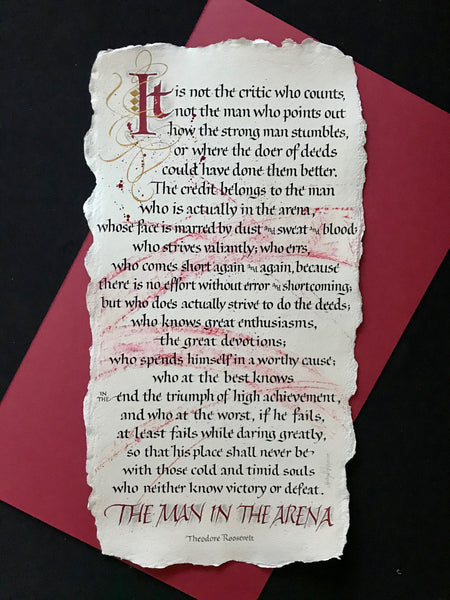 It is not the critic who counts,
not the man who points out
how the strong man stumbles,
or where the doer of deeds
could have done them better.
The credit belongs to the man
who is actually in the arena,
whose face is marred by dust and sweat and blood;
who strives valiantly; who errs,
who comes short again and again, because
there is no effort without error and shortcoming;
but who does actually strive to do the deeds;
who knows great enthusiasms,
the great devotions;
who spends himself in a worthy cause;
who at the best knows
IN THE end the triumph of high achievement,
and who at the worst, if he fails,
at least fails while daring greatly,
so that his place shall never be
with those cold and timid souls
who neither know victory or defeat.
THE MAN IN THE ARENA
Theodore Roosevelt